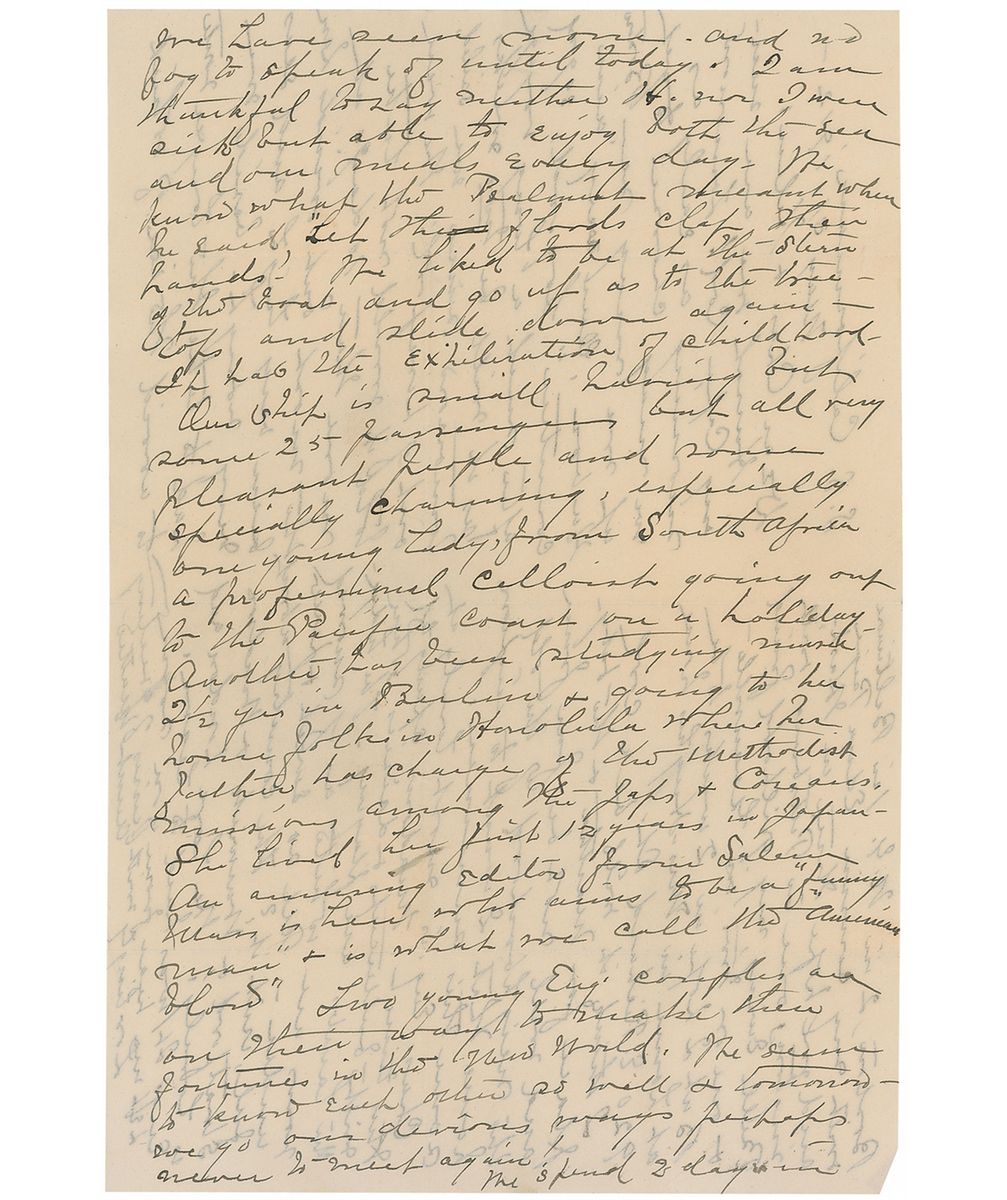 we have seen none - and no
fog to speak of until today. I am
thankful to say neither H. nor I were
sick but able to enjoy both the sea
and our meals every day - We
know what the Psalmist meant when
he said "Let the floods clap their
hands." We liked to be at the stern
of the boat and go up as to the tree-
tops and slide down again -
It has the exhiliration of childhood.
Our ship is small having but
some 25 passengers but all very
pleasant people and some
specially charming, especially
one young lady, from South Africa
a professional celloist going out
to the Pacific coast on a holiday.
Another has been studying music
2½ yrs in Berlin & going to her
home folks in Honolulu where her
father has charge of the Methodist
missions among the Japs & Coreans.
She lived her first 12 years in Japan -
An amusing Editor from Salem
Mass is here who aims to be a "funny
man" & is what we call the "American
blow" Two young Eng. couples are
on their way to make their
fortunes in the New World. We seem
to know each other so well & tomorrow -
we go our devious ways perhaps
never to meet again! We spend 2 days in